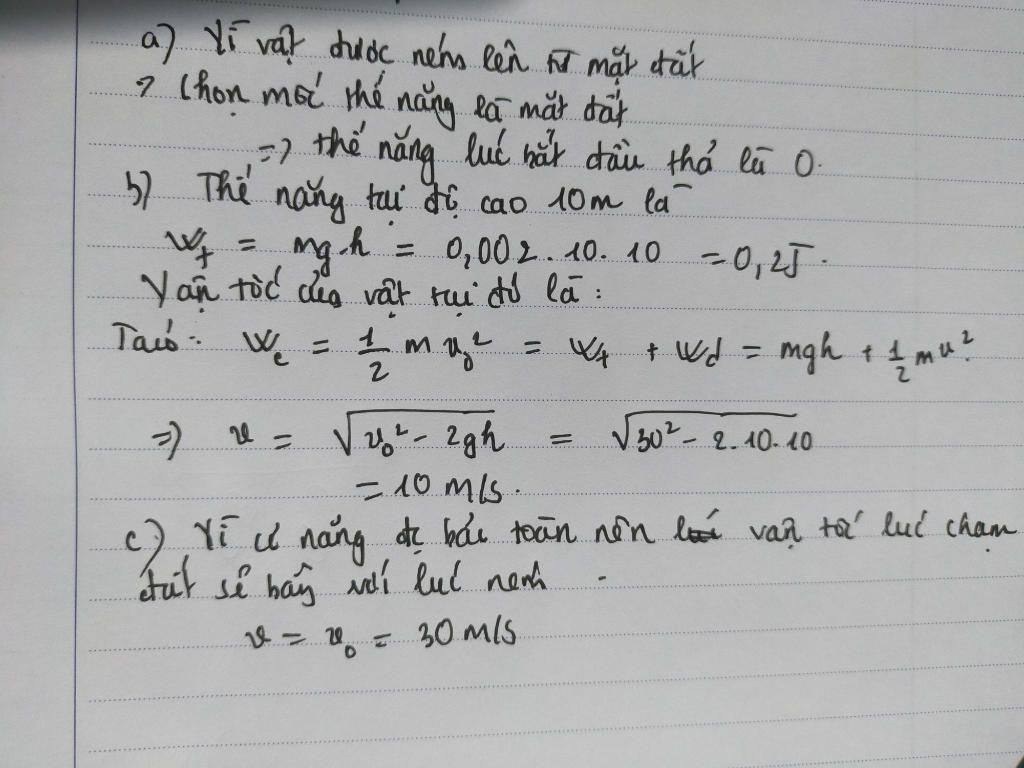 a) Vì vật được ném lên từ mặt đất
? Chọn mốc thế năng là mặt đất
=> thế năng lúc bắt đầu thả là 0.
b) Thế năng tại độ cao 10m là
Wt = mg.h = 0,002.10.10 = 0,2J.
Vận tốc của vật tại đó là:
Ta có: Wc = 1/2 m v₀² = Wt + Wd = mgh + 1/2 mv²
=> v = √(v₀² - 2gh) = √(30² - 2.10.10)
= 10 m/s.
c) Vì cơ năng đc bảo toàn nên vận tốc lúc chạm
đất sẽ bằng với lúc ném
v = v₀ = 30 m/s